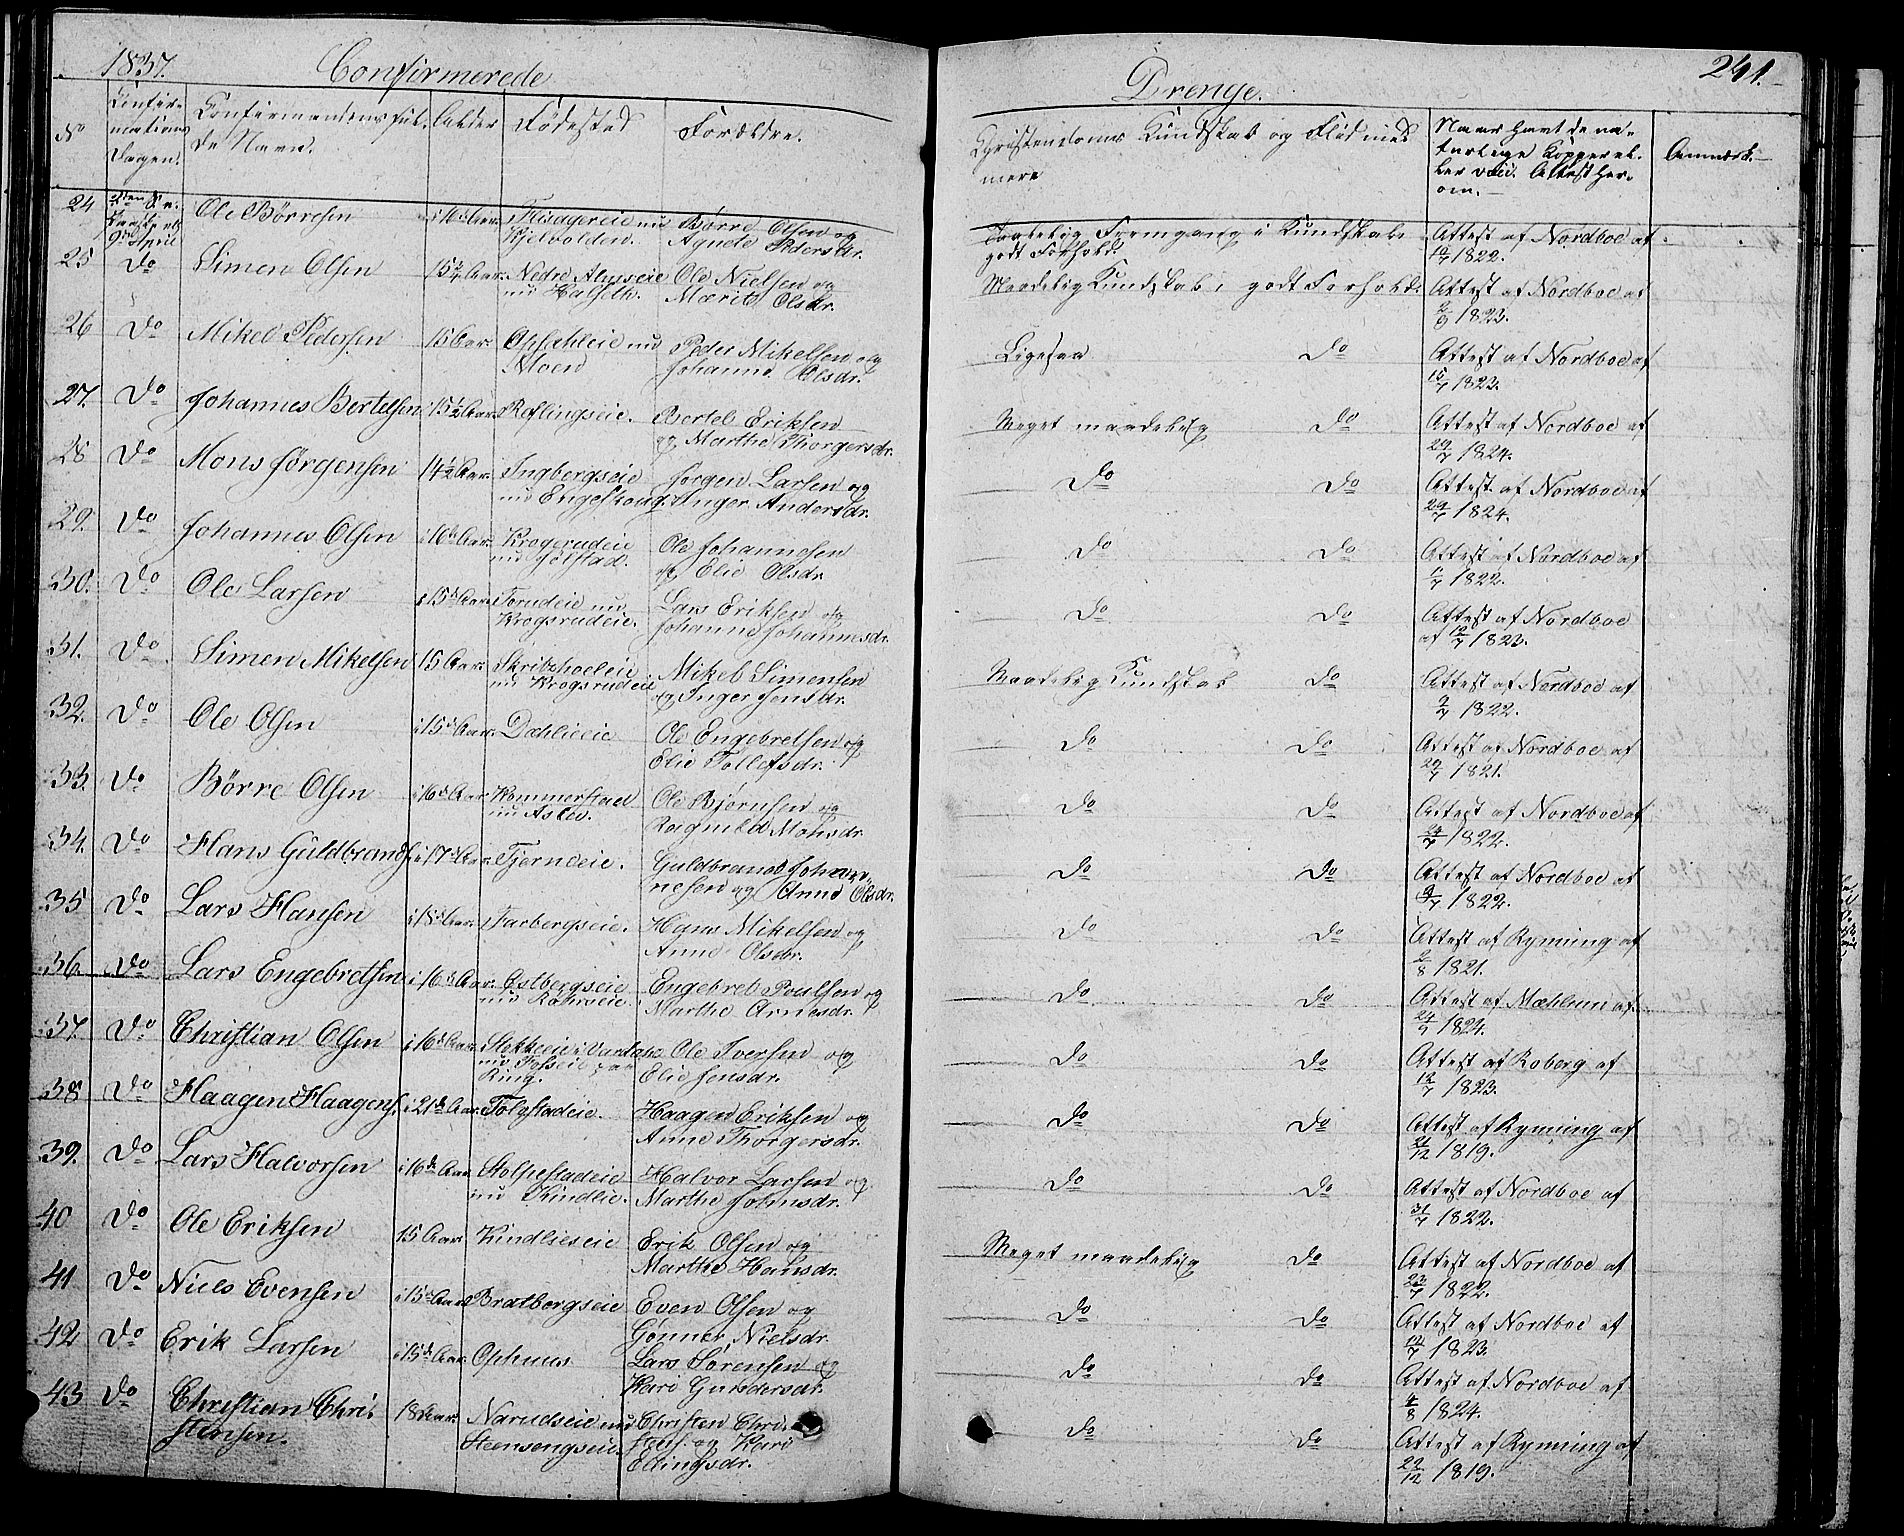 1837. Confirmerede Drenge. 241.
No Confir-mations Dagen. Confirmandens ful-de Navn. Alder Fødested Forældre. Christendoms Kundskab og Flid med mere Naar havt de na-turlige Kopper el-ler vac. Attest her-om. Anmærk.
24 9de April Ole Børresen i 16de Aar. nu Kjelvolden. Børre Olsen og Agnete Pedersdr. Fremgang i Kundskab godt Forhold. Attest af Nordboe af 1822.
25 Do Simen Olsen 15 3/4 Aar. Nedre Alysseie nu Halseth. Ole Nielsen og Marit Olsdr. Maadelig Kundskab, godt Forhold. Attest af Nordboe af 1823.
26 Do Mikel Pedersen 15 Aar. Opsahleie nu Moen Peder Mikelsen og Johanne Olsdr. Ligesaa Do Attest af Nordboe af 15/7 1823.
27. Do Johannes Bertelsen 15 1/2 Aar. Reflingseie. Bertel Eriksen og Marthe Thorgersdr. Meget maadelig Do Attest af Nordboe af 29/7 1824.
28 Do Mons Jørgensen 14 1/2 Aar. Ingbergseie nu Engeskoug. Jørgen Larsen og Inger Andersdr. Do Do Attest af Nordboe af 29/7 1824.
29. Do Johannes Olsen i 16de Aar. Krogerudeie nu Jølstad. Ole Johannesen og Elie Olsdr. Do Do Attest af Nordboe af 1822.
30. Do Ole Larsen i 15de Aar. Torudeie nu Krogsrudeie. Lars Eriksen og Johanne Johannesdr. Do Do Attest af Nordboe af 12/7 1823.
31. Do Simen Mikelsen 15 Aar. Skribshoeleie nu Krogsrudeie Mikel Simensen og Inger Jensdr. Maadelig Kundskab Do Attest af Nordboe af 1822.
32. Do Ole Olsen i 15de Aar. Dæhlieeie Ole Engebretsen og Elie Tollefsdr. Do Do Attest af Nordboe af 29/7 1821.
33. Do Børre Olsen i 16de Aar Kommerstad nu Aslev. Ole Bjørnsen og Ragnild Monsdr. Do Do Attest af Nordboe af 24/7 1822.
34. Do Hans Guldbrands. i 17de Aar. Tjerneie. Guldbrand Johan-nesen og Anne Olsdr. Do Do Attest af Nordboe af 9/7 1822.
35 Do Lars Hansen i 18de Aar. Farbergseie. Hans Mikelsen og Anne Olsdr. Do Do Attest af Rynning af 2/8 1821.
36. Do Lars Engebretsen i 16de Aar. Østbergseie nu Rohrseie. Engebret Poulsen og Marthe Arnesdr. Do Do Attest af Mæhlum af 24/9 1824.
37. Do Christian Olsen i 16de Aar. Stekkeeie i Vardal nu paa Ring. Ole Iversen og Elie Jensdr. Do Do Attest af Roberg af 12/7 1823.
38 Do Haagen Haagens. i 21de Aar. Tolystadeie. Haagen Eriksen og Anne Thorgersdr. Do Do Attest af Rynning af 21/12 1819.
39. Do Lars Halvorsen i 16de Aar Stolpestadeie nu Kindlie. Halvor Larsen og Marthe Johnsdr. Do Do Attest af Nordboe af 31/7 1822.
40 Do Ole Eriksen 15 Aar. Kindlieseie Erik Olsen og Marthe Hansdr. Meget maadelig Do Attest af Nordboe af 23/7 1822.
41 Do Niels Evensen i 15de Aar Bratbergseie Even Olsen og Gønner Nielsdr. Do Do Attest af Nordboe af 1823.
42 Do Erik Larsen i 15de Aar. Ophuus Lars Sørensen og Kari Gundersdr. Do Do Attest af Nordboe af 4/8 1824.
43 Do Christian Chri-stensen. 18 Aar. Narudseie nu Steensengseie. Christen Chri-stens. og Kari Ellingsdr. Do Do Attest af Rynning af 22/12 1819.